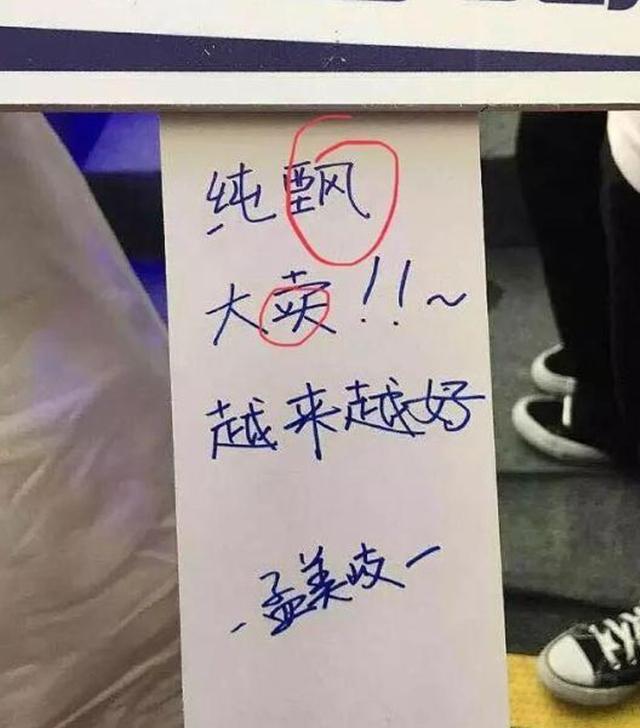 纯
大卖!!~
越来越好
孟美岐